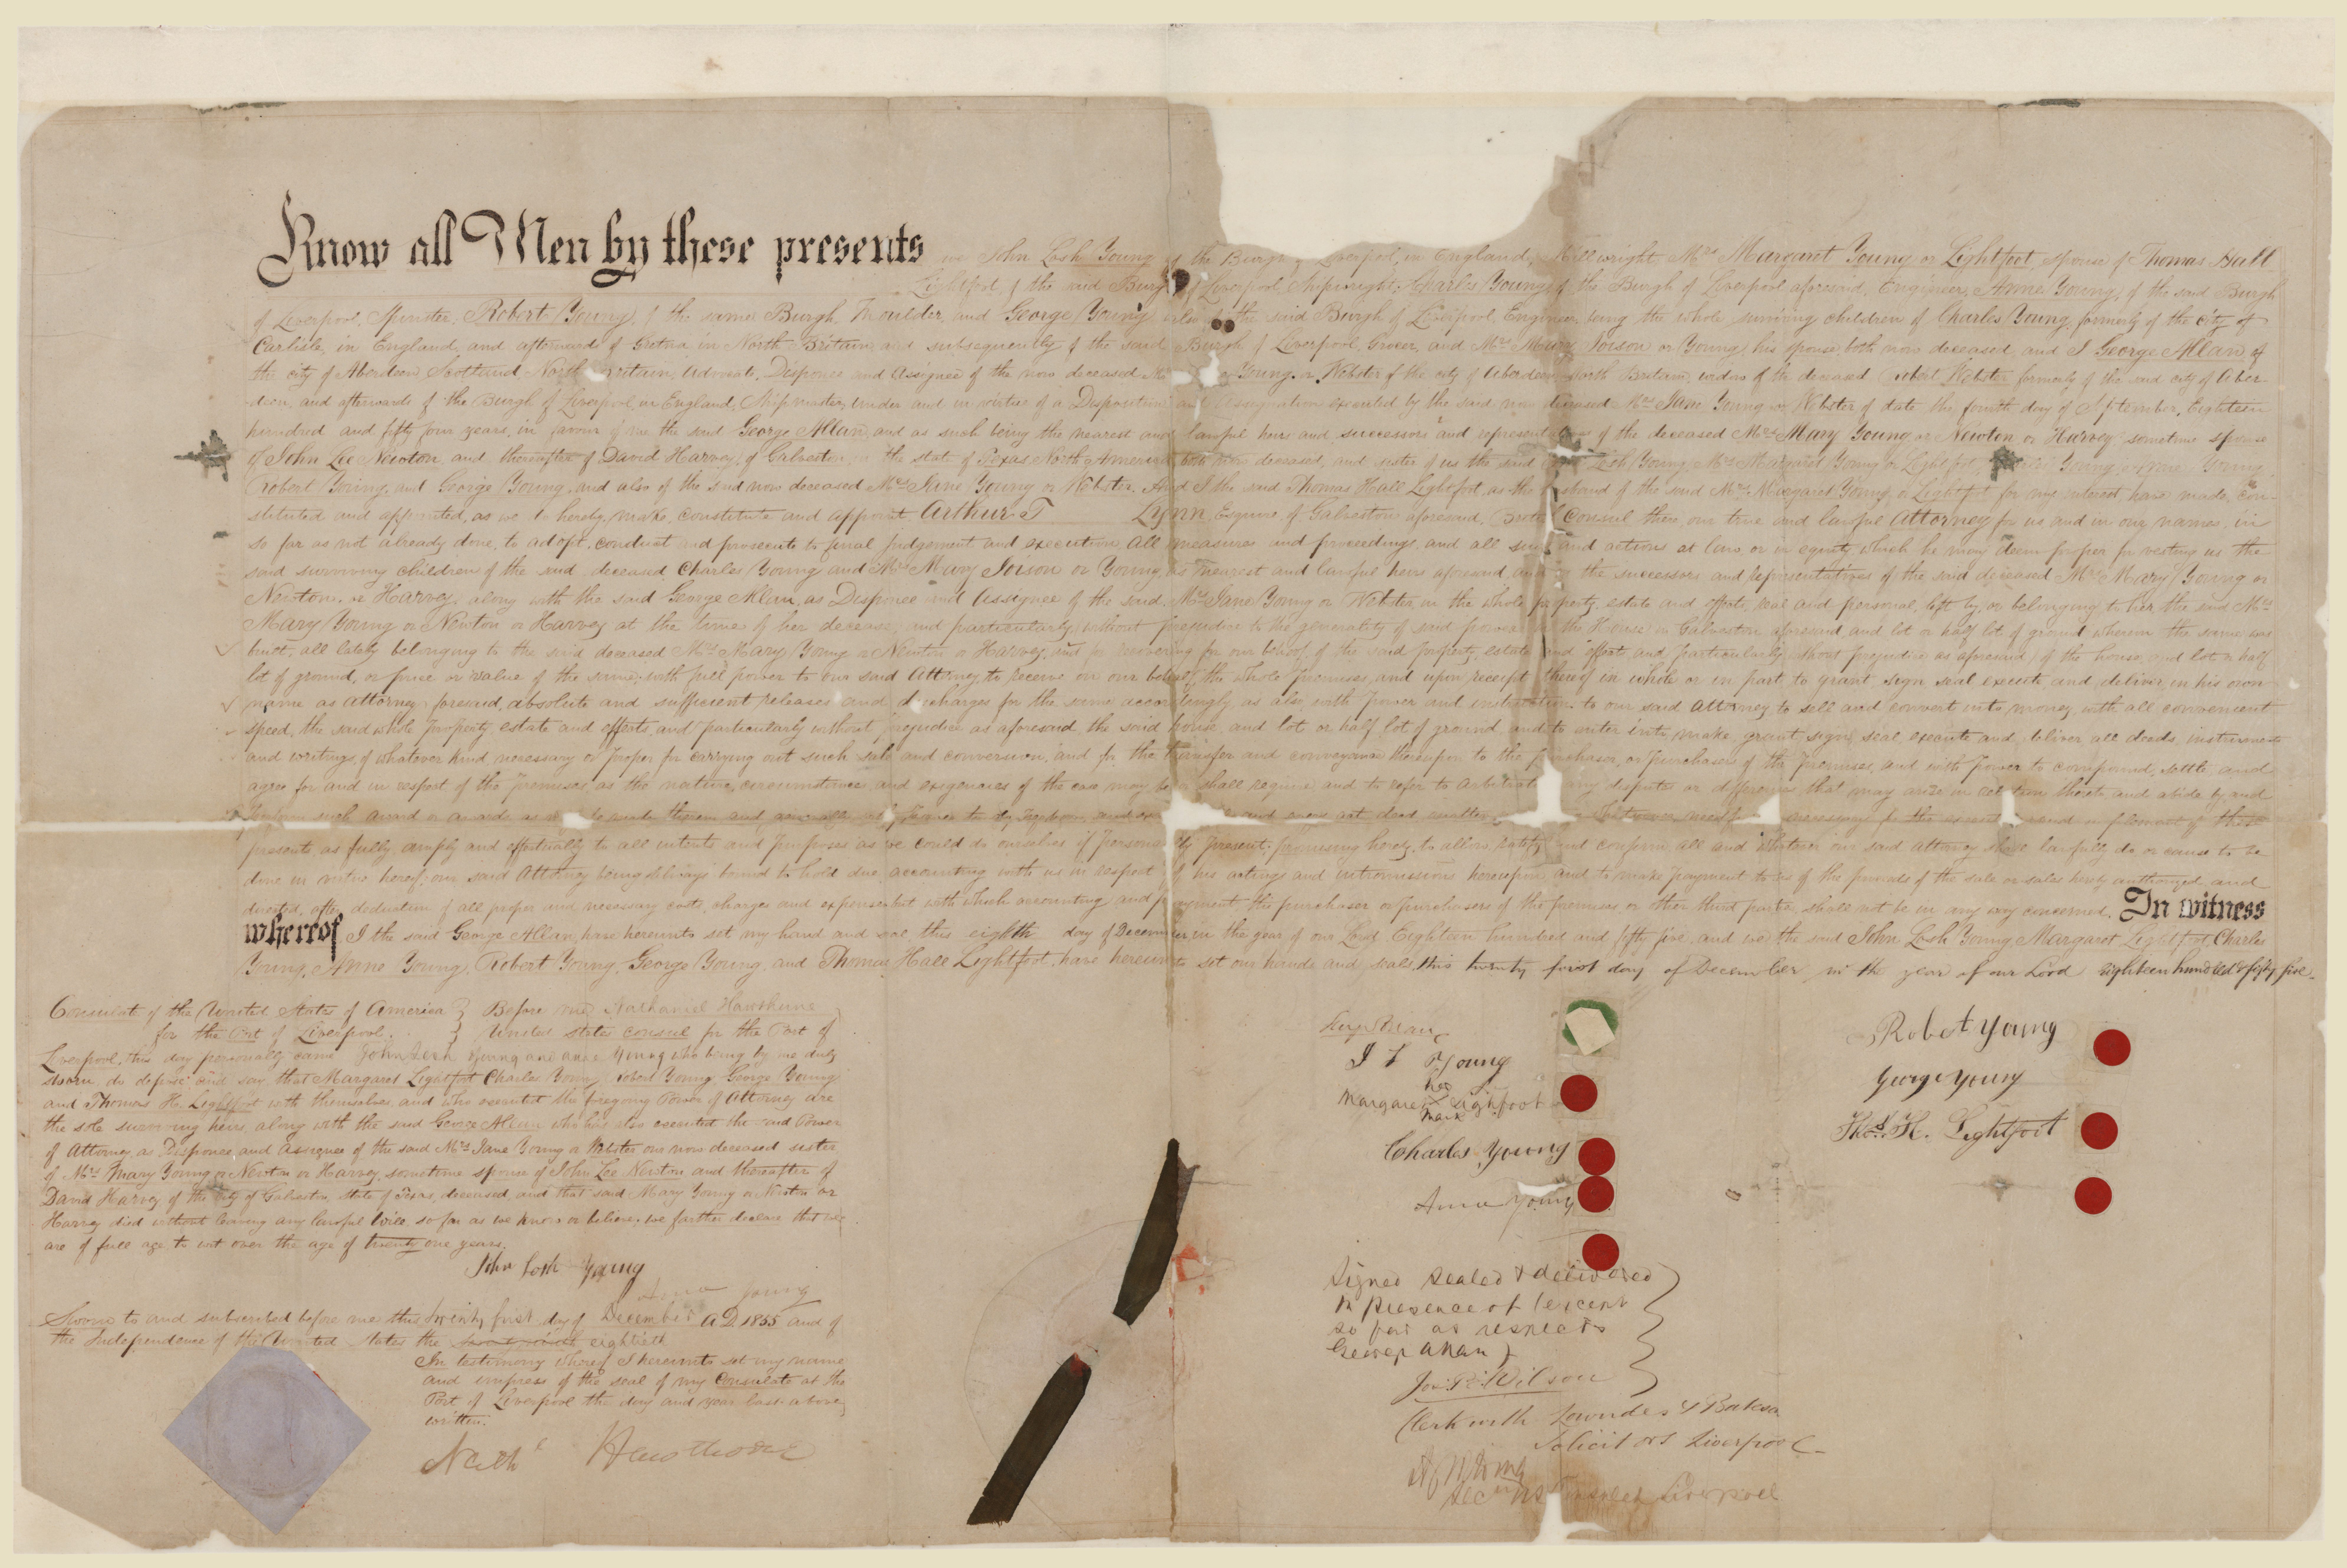 Know all Men by these presents we John Losh Young of the Burgh of Liverpool, in England, Millwright, Mrs Margaret Young or Lightfoot, spouse of Thomas Hall
Lightfoot of the said Burgh of Liverpool, Shipwright, Charles Young, of the Burgh of Liverpool aforesaid, Engineer, Anne Young, of the said Burgh
of Liverpool, Spinster, Robert Young, of the same Burgh, Moulder, and George Young also of the said Burgh of Liverpool, Engineer, being the whole surviving children of Charles Young, formerly of the city of
Carlisle, in England, and afterwards of Gretna in North Britain, and subsequently of the said Burgh of Liverpool, Grocer, and Mrs Mary Ivison or Young, his spouse, both now deceased, and I George Allan, of
the city of Aberdeen Scotland North Britain, Advocate, Disponee and Assignee of the now deceased Mrs Young or Webster of the city of Aberdeen, North Britain, widow of the deceased Robert Webster formerly of the said city of Aber-
-deen, and afterwards of the Burgh of Liverpool, in England, Shipmaster, under and in virtue of a Disposition and Assignation executed by the said now deceased Mrs Jane Young or Webster of date the fourth day of September, Eighteen
hundred and fifty four years, in favour of me the said George Allan, and as such being the nearest and lawful heirs and successors and representatives of the deceased Mrs Mary Young or Newton or Harvey, sometime spouse
of John Lee Newton, and thereafter of David Harvey, of Galveston, in the state of Texas North America, both now deceased, and sister of us the said Losh Young, Mrs Margaret Young or Lightfoot, Young, Young,
Robert Young, and George Young, and also of the said now deceased Mrs Jane Young or Webster. And I the said Thomas Hall Lightfoot, as the husband of the said Mrs Margaret Young or Lightfoot for my interest have made, con-
stituted and appointed, as we do hereby, make, constitute and appoint Arthur T Lynn, Esquire of Galveston aforesaid, British Consul there, our true and lawful Attorney for us and in our names, in
so far as not already done, to adopt, conduct and prosecute to final judgement and execution All measures and proceedings, and all suits and actions at law or in equity which he may deem proper for vesting us the
said surviving children of the said deceased Charles Young and Mrs Mary Ivison or Young, as nearest and lawful heirs aforesaid, and the successors and representatives of the said deceased Mrs Mary Young or
Newton, or Harvey, along with the said George Allan, as Disponee and Assignee of the said Mrs Jane Young or Webster, in the whole property, estate and effects, real and personal, left by, or belonging to her the said Mrs
Mary Young or Newton or Harvey at the time of her decease, and particularly, without prejudice to the generality of said powers the House in Galveston aforesaid, and lot or half lot of ground whereon the same was
built, all lately belonging to the said deceased Mrs Mary Young or Newton or Harvey, and for recovering for our behoof of the said property, estate and effects and particularly without prejudice as aforesaid, of the house, and lot or half
lot of ground, or price or value of the same; with full power to our said Attorney to receive on our behalf, the whole premises, and upon receipt thereof in whole or in part, to grant sign seal execute and deliver, in his own
name as attorney foresaid, absolute and sufficient releases and discharges for the same accordingly, as also with power and instruction to our said Attorney to sell and convert into money, with all convenient
speed, the said whole property, estate and effects, and particularly without prejudice as aforesaid the said house, and lot or half lot of ground and to enter into, make, grant, sign, seal, execute and deliver all deeds, instruments
and writings, of whatever kind necessary or proper for carrying out such sale and conversion, and for the transfer and conveyance thereupon to the purchaser, or purchasers of the premises, and with power to compound, settle and
agree for and in respect of the premises as the nature, circumstances and exigencies of the case may be or shall require and to refer to arbitration any disputes or differences that may arise in relation thereto and abide by and
perform such award or awards as
presents, as fully, amply and effectually to all intents and purposes as we could do ourselves if personally present; promising hereby to allow, ratify and confirm, all and whatever our said Attorney shall lawfully do or cause to be
done in virtue hereof; our said Attorney being always bound to hold due accounting with us in respect of his actings and intromissions hereupon and to make payment to us of the proceeds of the sale or sales hereby authorized and
directed, after deduction of all proper and necessary costs, charges and expenses but with which accounting and payment the purchaser or purchasers of the premises, or other third party, shall not be in any way concerned. In witness
whereof I the said George Allan, have hereunto set my hand and seal, this eighth day of December in the year of our Lord Eighteen hundred and fifty five, and we the said John Losh Young Margaret Lightfoot, Charles
Young, Anne Young, Robert Young, George Young, and Thomas Hall Lightfoot, have hereunto set our hands and seals, this twenty first day of December in the year of our Lord eighteen hundred & fifty five.
Consulate of the United States of America } Before me Nathaniel Hawthorne
for the Port of Liverpool. } United States consul for the Port of
Liverpool, this day personally came John Losh Young and Anne Young who being by me duly
sworn, do depose and say that Margaret Lightfoot Charles Young, Robert Young, George Young
and Thomas H. Lightfoot with themselves, and who executed the foregoing Power of Attorney are
the sole surviving heirs, along with the said George Allan who has also executed the said Power
of Attorney, as Disponee and Assignee of the said Mrs Jane Young or Webster our now deceased sister
of Mrs Mary Young or Newton or Harvey, sometime spouse of John Lee Newton and thereafter of
David Harvey of the city of Galveston, State of Texas, deceased, and that said Mary Young or Newton or
Harvey died without leaving any lawful so far as we know or believe; we farther declare that we
are of full age to wit over the age of twenty one years.
John Losh Young
Anne Young
Sworn to and subscribed before me this twenty first day of December A.D. 1855 and of
the Independence of the United States the eightieth
In testimony whereof I hereunto set my name
and impress of the seal of my Consulate at the
Port of Liverpool the day and year last above
written.
Nathl Hawthorne
Geo Allan
J L Young
her
Margaret X Lightfoot
mark
Charles Young
Anne Young
Robert Young
George Young
Thos. H. Lightfoot
Signed sealed & delivered
in presence of (except
so far as respects
George Allan)
Wilson
Clerk with Lowndes & Bateson
Solicitors Liverpool
Consulate Liverpool